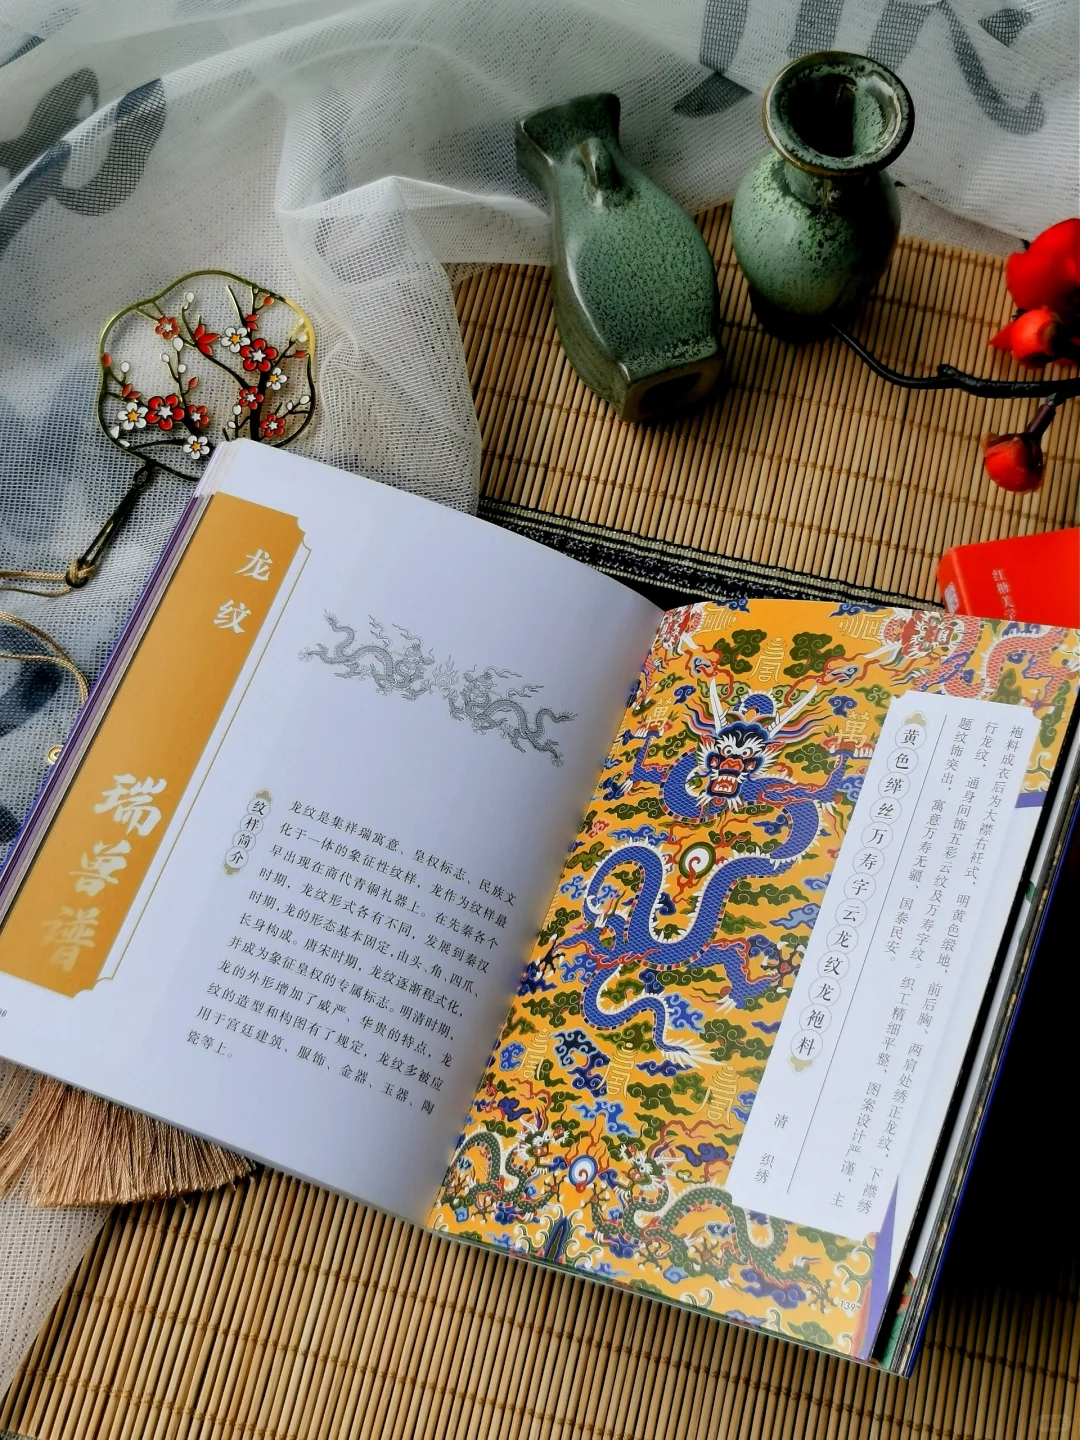 龙纹
瑞兽谱
纹样简介
龙纹是集祥瑞寓意、皇权标志、民族文
化于一体的象征性纹样，龙作为纹样最
早出现在商代青铜礼器上。在先秦各个
时期，龙纹形式各有不同，发展到秦汉
时期，龙的形态基本固定，由头、角、四爪、
长身构成。唐宋时期，龙纹逐渐程式化，
并成为象征皇权的专属标志。明清时期，
龙的外形增加了威严、华贵的特点，龙
纹的造型和构图有了规定，龙纹多被应
用于宫廷建筑、服饰、金器、玉器、陶
瓷等上。
萬
萬
袍料成衣后为大襟右衽式、明黄色缎地，前后胸、两肩处绣正龙纹，下襟绣
行龙纹，通身间饰五彩云纹及万寿字纹。织工精细平整，图案设计严谨，主
题纹饰突出，寓意万寿无疆、国泰民安。
黄色缂丝万寿字云龙纹龙袍料
清
织绣
139